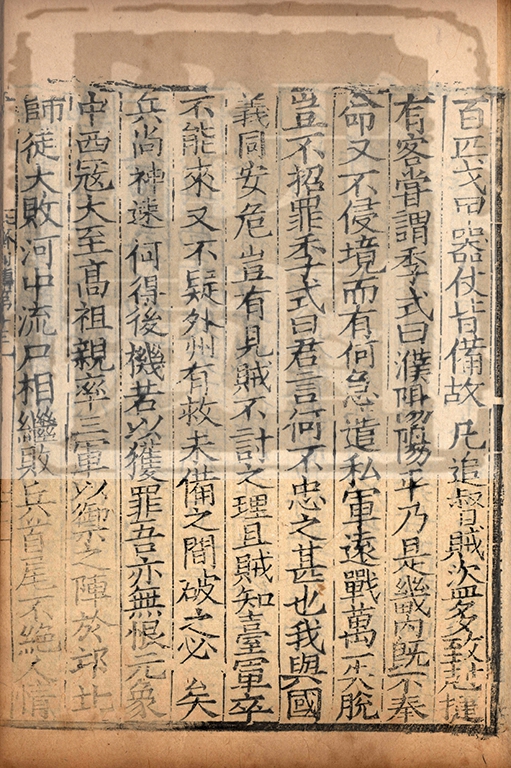 百匹戈甲器仗皆備故凡追督賊盜多致尅捷
有客嘗謂季式曰濮陽陽平乃是畿内既不奉
命又不侵境而有何急遣私軍遠戰萬一失脫
豈不招罪季式曰君言何不忠之甚也我與國
義同安危豈有見賊不計之理且賊知臺軍卒
不能來又不疑外州有救未備之間破之必矣
兵尚神速何得後機若以獲罪吾亦無恨元象
中西寇大至高祖親率三軍以禦之陣於邙北
師徒大敗河中流尸相繼敗兵首尾不絕人情